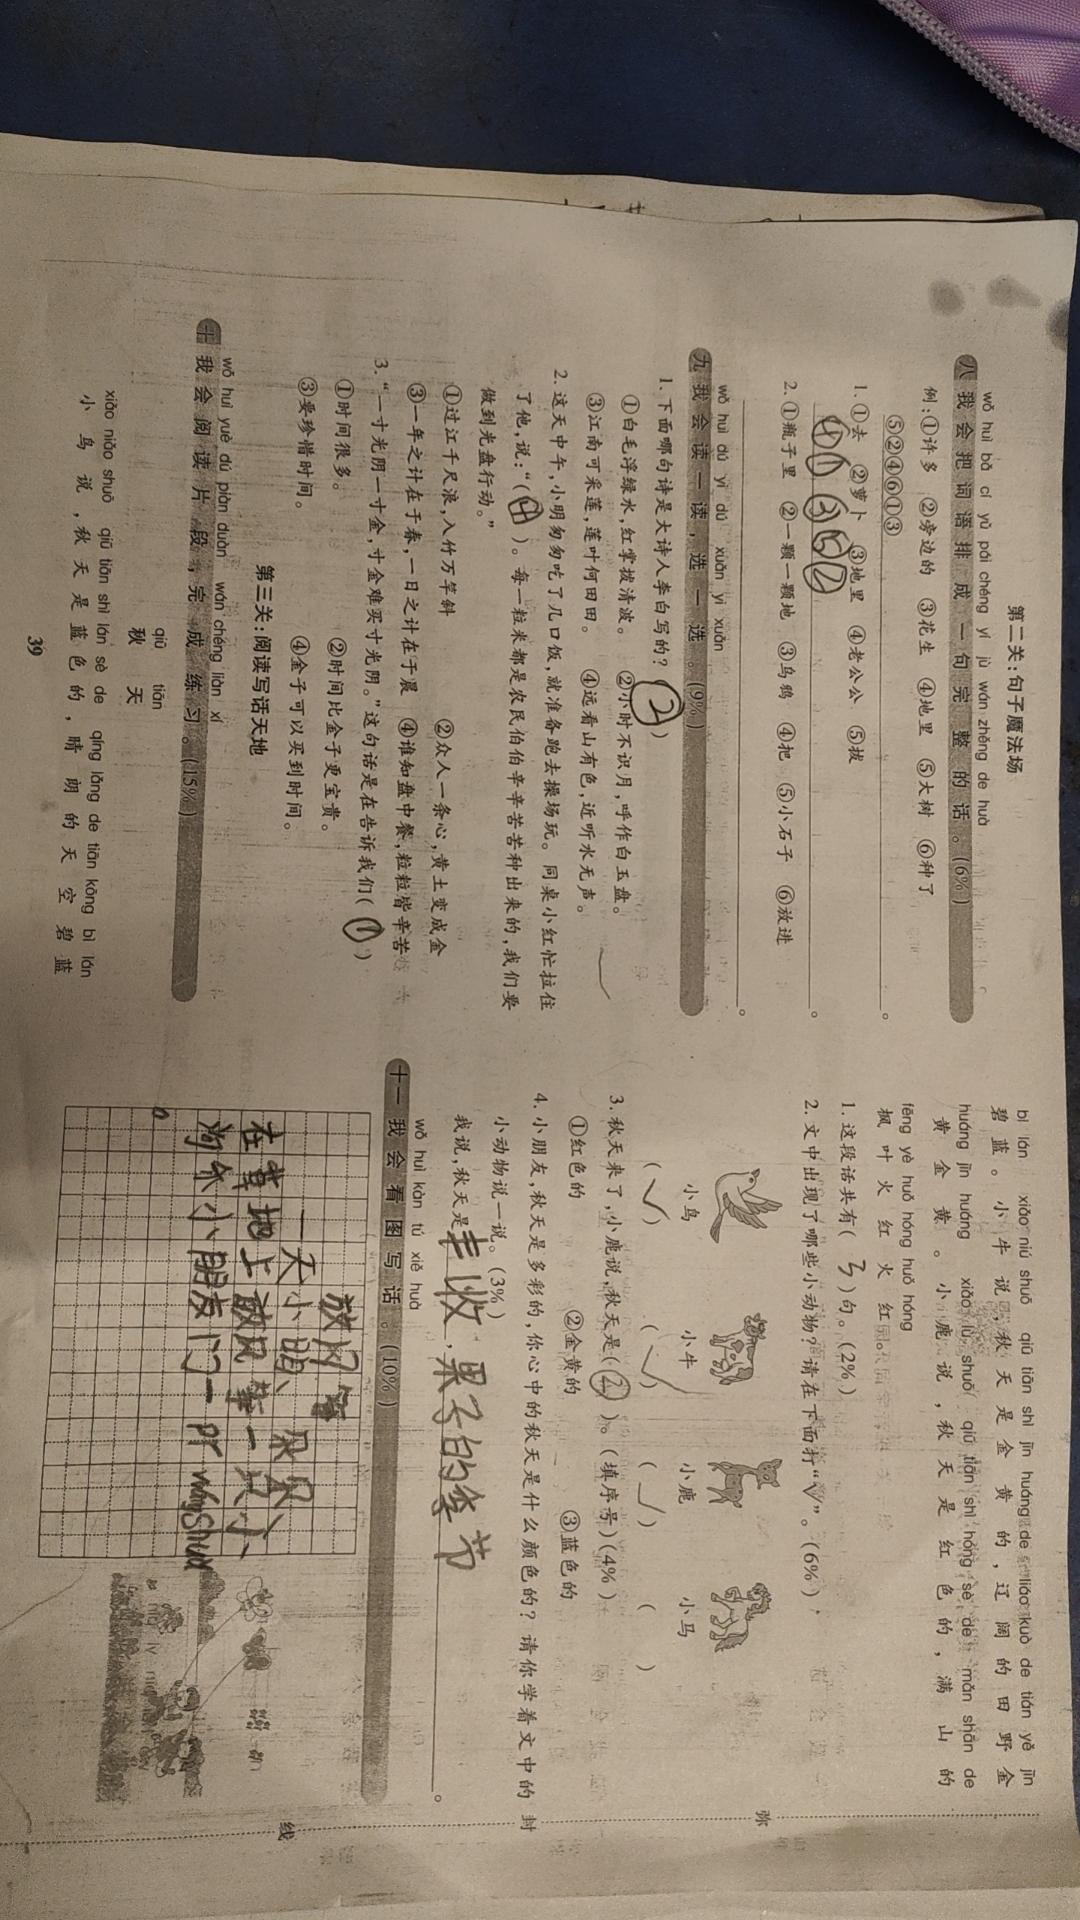 第二关：句子魔法场
wǒ huì bǎ cí yǔ pái chéng yí jù wán zhěng de huà
八 我会把词语排成一句完整的话。（6%）
例：①许多 ②旁边的 ③花生 ④地里 ⑤大树 ⑥种了
⑤②④⑥①③。
1. ①去 ②萝卜 ③地里 ④老公公 ⑤拔
④①③⑤②。
2. ①瓶子里 ②一颗一颗地 ③乌鸦 ④把 ⑤小石子 ⑥放进
。
wǒ huì dú yi dú xuǎn yi xuǎn
九 我会读一读，选一选。（9%）
1. 下面哪句诗是大诗人李白写的？（②）
①白毛浮绿水，红掌拨清波。 ②小时不识月，呼作白玉盘。
③江南可采莲，莲叶何田田。 ④远看山有色，近听水无声。
2. 这天中午，小明匆匆吃了几口饭，就准备跑去操场玩。同桌小红忙拉住
了他，说：“（④）。每一粒米都是农民伯伯辛辛苦苦种出来的，我们要
做到光盘行动。”
①过江千尺浪，入竹万竿斜 ②众人一条心，黄土变成金
③一年之计在于春，一日之计在于晨 ④谁知盘中餐，粒粒皆辛苦
3. “一寸光阴一寸金，寸金难买寸光阴。”这句话是在告诉我们（①）
①时间很多。 ②时间比金子更宝贵。
③要珍惜时间。 ④金子可以买到时间。
第三关：阅读写话天地
wǒ huì yuè dú piàn duàn wán chéng liàn xí
十 我会阅读片段，完成练习。（15%）
qiū tiān
秋天
xiǎo niǎo shuō qiū tiān shì lán sè de qíng lǎng de tiān kōng bì lán
小鸟说，秋天是蓝色的，晴朗的天空碧蓝
39
bì lán xiǎo niú shuō qiū tiān shì jīn huáng de liáo kuò de tián yě jīn
碧蓝。小牛说，秋天是金黄的，辽阔的田野金
huáng jīn huáng xiǎo lù shuō qiū tiān shì hóng sè de mǎn shān de
黄金黄。小鹿说，秋天是红色的，满山的
fēng yè huǒ hóng huǒ hóng
枫叶火红火红。
1. 这段话共有（3）句。（2%）
2. 文中出现了哪些小动物？请在下面打“√”。（6%）
小鸟 小牛 小鹿 小马
（√） （√） （√） （ ）
3. 秋天来了，小鹿说，秋天是（②）。（填序号）（4%）
①红色的 ②金黄的 ③蓝色的
4. 小朋友，秋天是多彩的，你心中的秋天是什么颜色的？请你学着文中的
小动物说一说。（3%）
我说，秋天是丰收，果子的季节。
wǒ huì kàn tú xiě huà
十一 我会看图写话。（10%）
放风筝
一天小明、
在草地上放风筝一只小
小朋友门一
弥
封
线